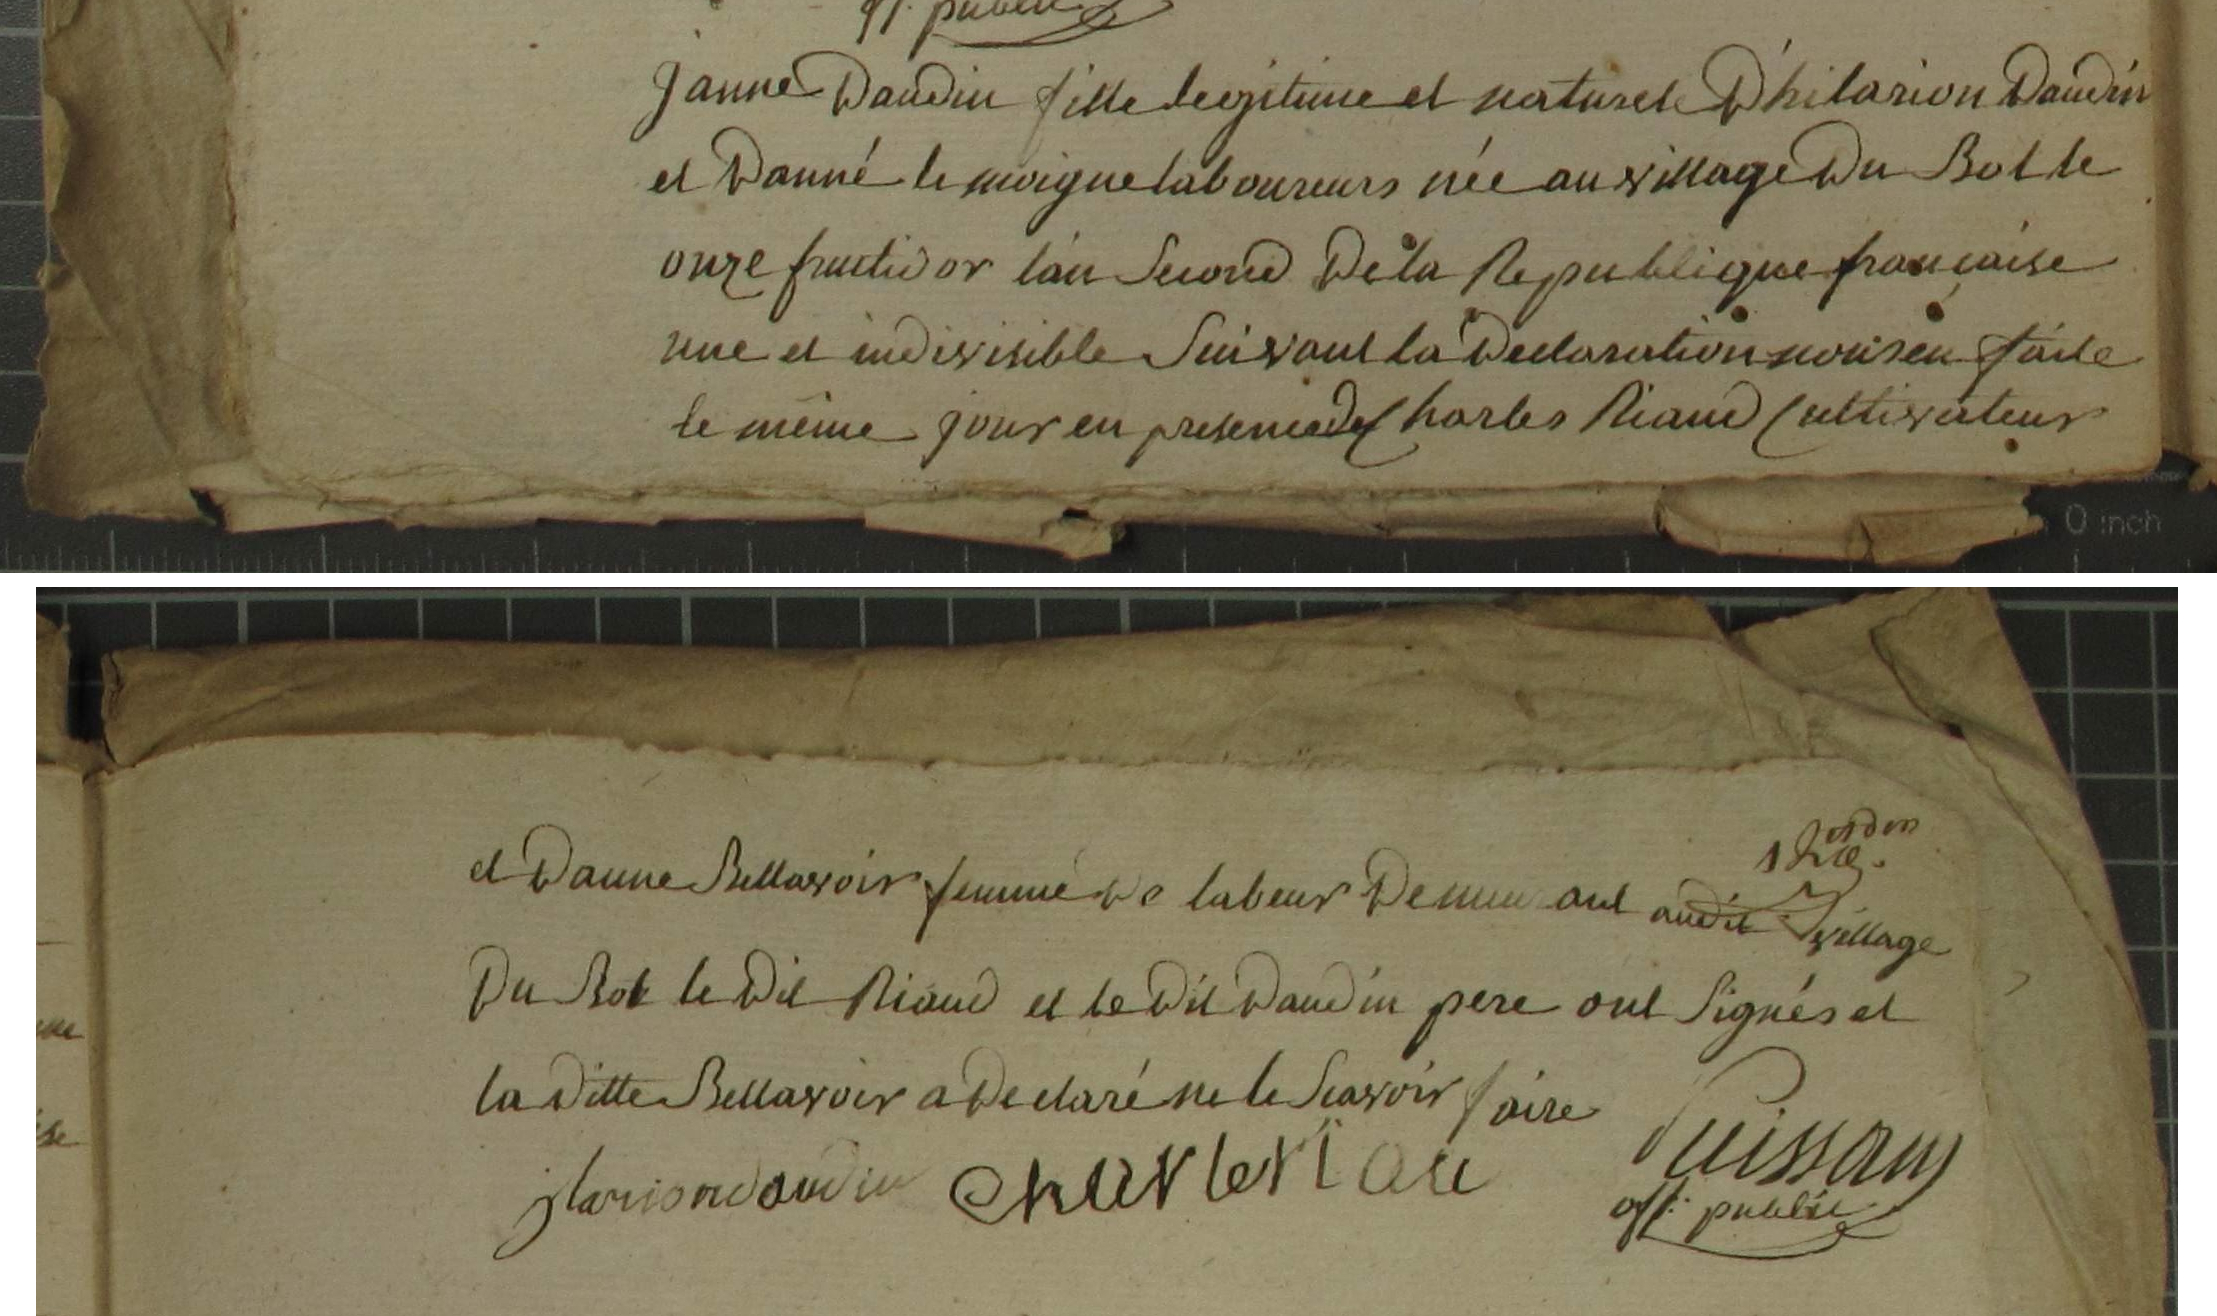 off. public
janne Daudin fille legitime et naturele D'hilarion Daudin
et D'anne le moigne laboureurs née au village Du Bot le
onze fructidor l'an Second De la Republique française
une et indivisible Suivant la Declaration nous en faite
le même jour en presence de Charles Riaud Cultivateur
et D'anne Bellavoir femme de labeur Demeurant audit village
Du Bot le Dit Riaud et le Dit Daudin pere ont Signés et
la Ditte Bellavoir a Declaré ne le Scavoir faire
jlarion daudin Charle riau Puissant
off. public
0 inch